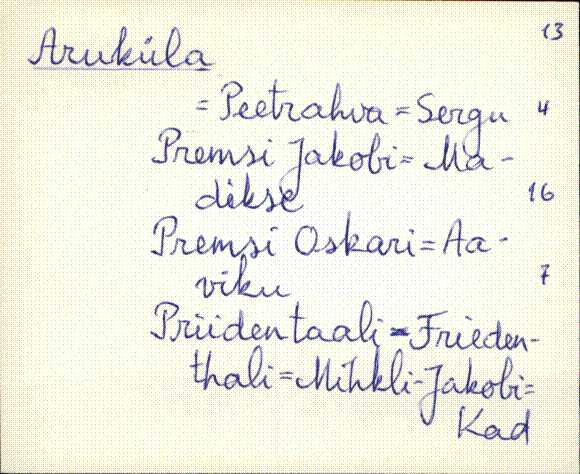 13
Aruküla
= Peetrahva = Sergu 4
Premsi Jakobi = Ma-
dikse 16
Premsi Oskari = Aa-
viku 7
Priidentaali = Frieden-
thali = Mihkli-Jakobi =
Kad